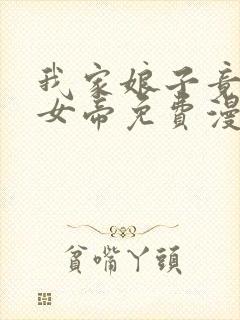 我家娘子竟
女帝免費漫
貧嘴丫頭